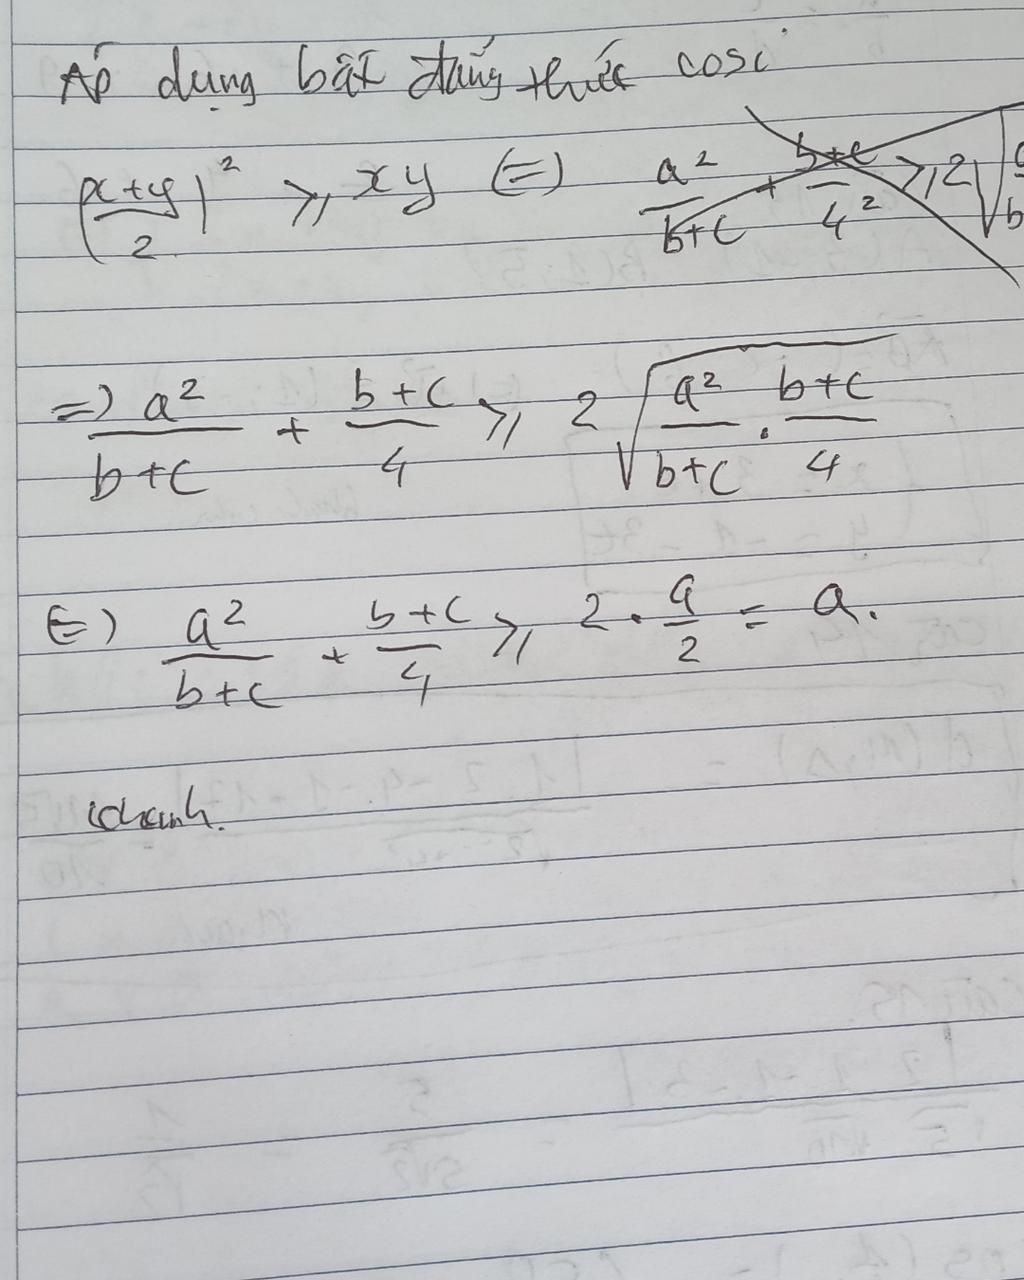 Áp dụng bất đẳng thức cosi
((x+y)/2)² ⩾ xy (=) a²/(b+c) + (b+c)/4² ⩾ 2√
=) a²/(b+c) + (b+c)/4 ⩾ 2√(a²/(b+c) . (b+c)/4)
(=) a²/(b+c) + (b+c)/4 ⩾ 2 . a/2 = a.